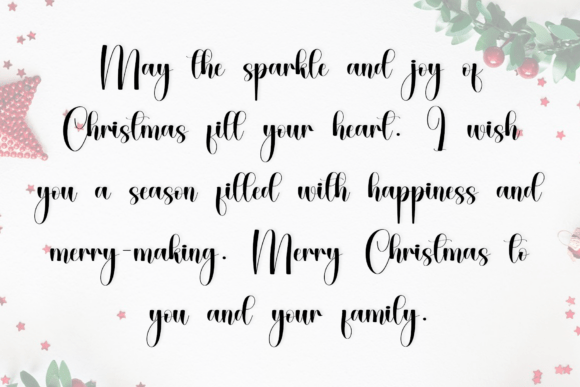 May the sparkle and joy of
Christmas fill your heart. I wish
you a season filled with happiness and
merry-making. Merry Christmas to
you and your family.